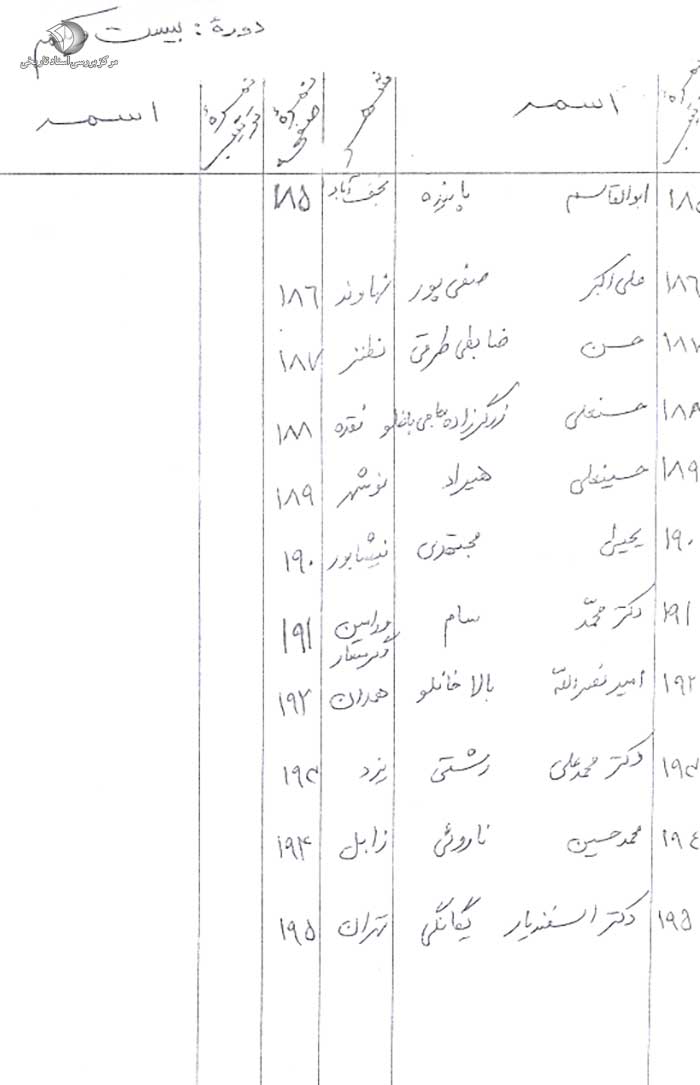 دورهٔ: بیست و یکم
مرکز بررسی اسناد تاریخی
نمرهٔ ترتیب اسم شهر نمرهٔ صفحه نمرهٔ ترتیب اسم
۱۸۵ ابوالقاسم پاینده نجف آباد ۱۸۵
۱۸۶ علی اکبر صفی پور نهاوند ۱۸۶
۱۸۷ حسن ضابطی طرقی نطنز ۱۸۷
۱۸۸ حسنعلی زرگرزاده نقده ۱۸۸
۱۸۹ حسینعلی هیراد نوشهر ۱۸۹
۱۹۰ یحیی مجتهدی نیشابور ۱۹۰
۱۹۱ دکتر محمّد سام ورامین ۱۹۱
گرمسار
۱۹۲ امیر نصرالله بالاخانلو همدان ۱۹۲
۱۹۳ دکتر محمد علی رشتی یزد ۱۹۳
۱۹٤ محمد حسین ناروئی زابل ۱۹۴
۱۹۵ دکتر اسفندیار یگانگی تهران ۱۹۵